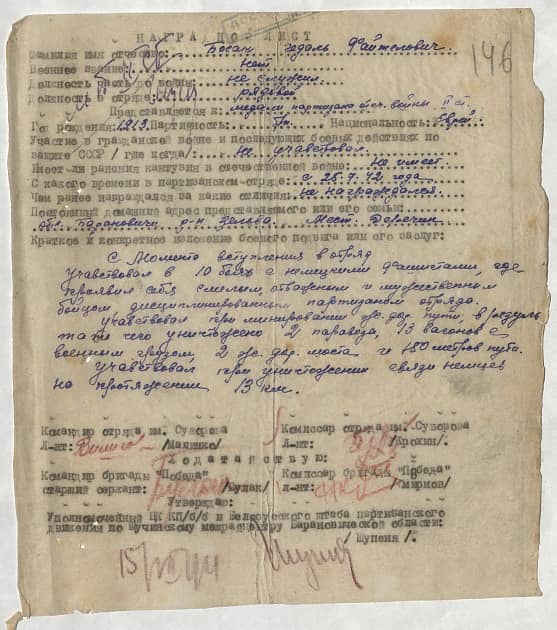 НАГРАДНОЙ ЛИСТ
146
Фамилия имя отчество: Босак Гедаль Файтелович.
Военное звание: нет
Должность часть до войны: не служил
Должность в отряде: рядовой
Представляется к: медали партизана отеч. войны II ст.
Год рождения: 1913. Партийность: Национальность: Еврей
Участие в гражданской войне и последующих боевых действиях по
защите СССР /где когда/: не учавствовал
Имеет ли ранения контузии в отечественной войне: не имеет
С какого времени в партизанском отряде: с 25.7.42 года
Чем ранее награждался за какие отличия: не награждался.
Постоянный домашний адрес представляемого или его семьи:
обл. Барановичи р-н Зельва. Мест. Деречин
Краткое и конкретное изложение боевого подвига или его заслуг:
С момента вступления в отряд
учавствовал в 10 боях с немецкими фашистами, где
проявил себя смелым, отважным и мужественным
бойцом дисциплинированным партизаном отряда.
учавствовал при минировании жел. дор. пути, в резуль
тате чего уничтожено 2 паравоза, 13 вагонов с
военным грузом, 2 жел. дор. моста и 180 метров пути.
Учавствовал при уничтожении связи немцев
на протяжении 13 км.
Командир отряда им. Суворова Комиссар отряда им. Суворова
Л-нт: /Малинко/ Л-нт: /Крохин/.
Ходатайствую:
Командир бригады "Победа" Комиссар бригады "Победа"
старший сержант: /Булак/ Л-нт: /Смирнов/
Утверждаю:
Уполномоченный ЦК КП/б/Б и Белорусского штаба партизанского
движения по Щучинскому межрайцентру Барановической области:
/Шупеня/.